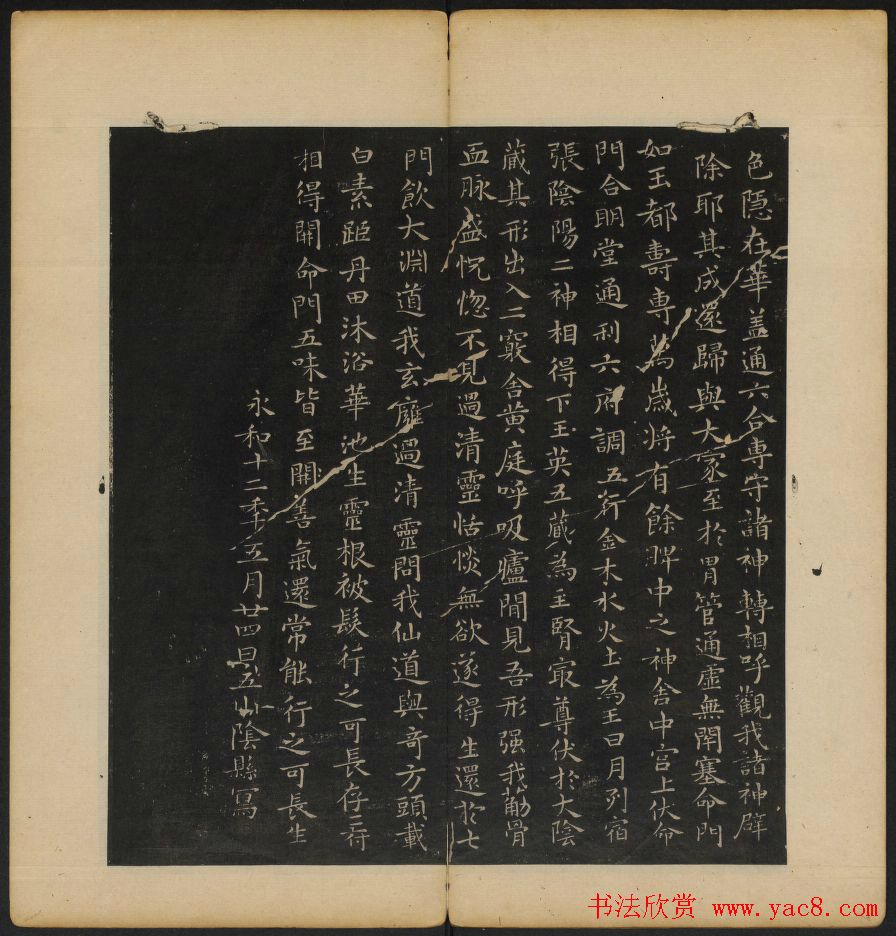 色隱在華盖通六合専守諸神轉相呼觀我諸神辟
除耶其成還歸與大家至於胃管通虛無閇塞命門
如玉都壽専萬歲将有餘脾中之神舎中宮上伏命
門合明堂通利六府調五行金木水火土為王日月列宿
張陰陽二神相得下玉英五藏為主腎冣尊伏於大陰
蔵其形出入二竅舎黄庭呼吸廬間見吾形强我筋骨
血脉盛怳惚不見過清靈恬惔無欲遂得生還於七
門飲大淵道我玄廱過清靈問我仙道與奇方頭載
白素距丹田沐浴華池生靈根被髮行之可長存三府
相得開命門五味皆至開善氣還常能行之可長生
永和十二年五月廿四日五山陰縣寫
书法欣赏 www.yac8.com